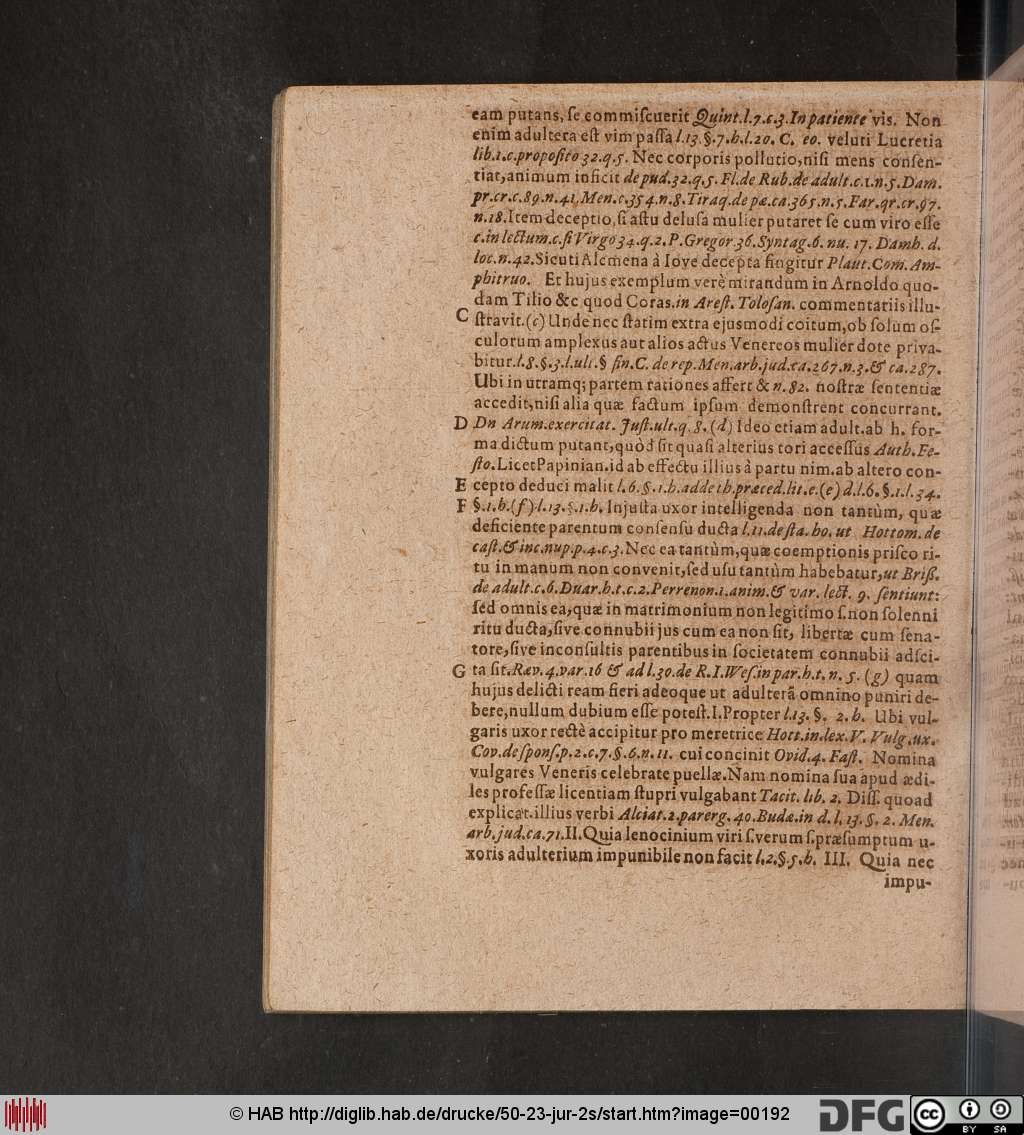 eam putans, ſe commiſcuerit Quint.l.7.c.3.In patiente vis. Non
enim adultera eſt vim paſſa l.13.§.7.h.l.20. C. eo. veluti Lucretia
lib.1.c.propoſito 32.q.5. Nec corporis pollutio,niſi mens conſen-
tiat,animum inficit de pud.32.q.5. Fl.de Rub.de adult.c.1.n.5.Dam.
pr.cr.c.89.n.41,Men.c.354.n.8.Tiraq.de pæ.ca.365.n.5.Far.qr.cr.97.
n.18.Item deceptio,ſi aſtu deluſa mulier putaret ſe cum viro eſſe
c.in lectum.c.ſi Virgo 34.q.2. P.Gregor.36.Syntag.6. nu. 17. Damh. d.
loc.n.42.Sicuti Alcmena à Iove decepta fingitur Plaut.Com.Am-
phitruo. Et hujus exemplum verè mirandum in Arnoldo quo-
dam Tilio &c quod Coras.in Areſt. Toloſan. commentariis illu-
C ſtravit.(c) Unde nec ſtatim extra ejusmodi coitum,ob ſolum oſ-
culorum amplexus aut alios actus Venereos mulier dote priva-
bitur.l.8.§.3.l.ult.§ fin.C. de rep.Men.arb.jud.ca.267.n.3.& ca.287.
Ubi in utramq; partem rationes affert & n.82. noſtræ ſententiæ
accedit,niſi alia quæ factum ipſum demonſtrent concurrant.
D Dn Arum.exercitat. Juſt.ult.q.8.(d) Ideo etiam adult.ab h. for-
ma dictum putant,quòd ſit quaſi alterius tori acceſſus Auth.Fe-
ſto.Licet Papinian.id ab effectu illius à partu nim.ab altero con-
E cepto deduci malit l.6.§.1.h.adde th.præced.lit.e.(e) d.l.6.§.1.l.34.
F §.1.h.(f) l.13.§.1.h.Injuſta uxor intelligenda non tantùm, quæ
deficiente parentum conſenſu ducta l.11.de ſta.ho. ut Hottom.de
caſt.& inc.nup.p.4.c.3.Nec ea tantùm,quæ coemptionis priſco ri-
tu in manum non convenit,ſed uſu tantùm habebatur,ut Briſſ.
de adult.c.6.Duar.h.t.c.2.Perrenon.1.anim.& var. lect. 9. ſentiunt:
ſed omnis ea,quæ in matrimonium non legitimo ſ.non ſolenni
ritu ducta,ſive connubii jus cum ea non ſit, libertæ cum ſena-
tore,ſive inconſultis parentibus in ſocietatem connubii adſci-
G ta ſit.Ræv.4.var.16 & ad l.30.de R.I.Weſ.in par.h.t.n. 5. (g) quam
hujus delicti ream fieri adeoque ut adulterã omnino puniri de-
bere,nullum dubium eſſe poteſt.I.Propter l.13. §. 2. h. Ubi vul-
garis uxor rectè accipitur pro meretrice Hott.in lex.V. Vulg.ux.
Cov.de ſponſ.p.2.c.7.§.6.n.11. cui concinit Ovid.4. Faſt. Nomina
vulgares Veneris celebrate puellæ.Nam nomina ſua apud ædi-
les profeſſæ licentiam ſtupri vulgabant Tacit. lib. 2. Diſſ. quoad
explicat.illius verbi Alciat.2.parerg. 40.Budæ.in d. l. 13. §. 2. Men.
arb.jud.ca.71.II.Quia lenocinium viri ſ.verum ſ.præſumptum u-
xoris adulterium impunibile non facit l.2.§.5.h. III. Quia nec
impu-
© HAB http://diglib.hab.de/drucke/50-23-jur-2s/start.htm?image=00192
DFG
cc BY SA